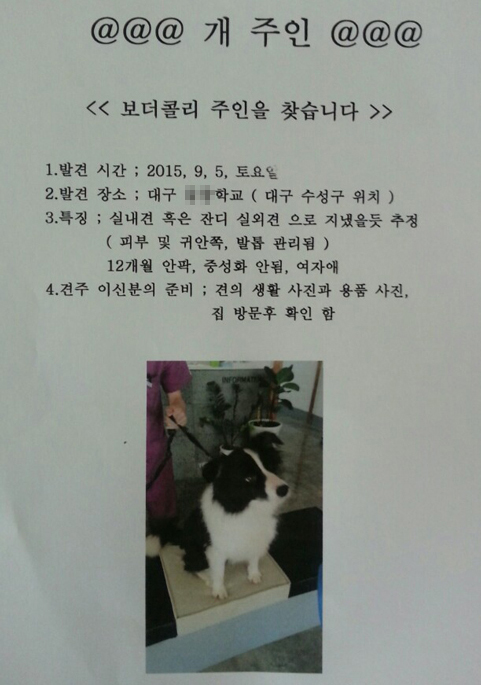 @@@ 개 주인 @@@
<< 보더콜리 주인을 찾습니다 >>
1.발견 시간 ; 2015, 9, 5, 토요일
2.발견 장소 ; 대구 학교 ( 대구 수성구 위치 )
3.특징 ; 실내견 혹은 잔디 실외견 으로 지냈을듯 추정
( 피부 및 귀안쪽, 발톱 관리됨 )
12개월 안팍, 중성화 안됨, 여자애
4.견주 이신분의 준비 ; 견의 생활 사진과 용품 사진,
집 방문후 확인 함
INFORMATION